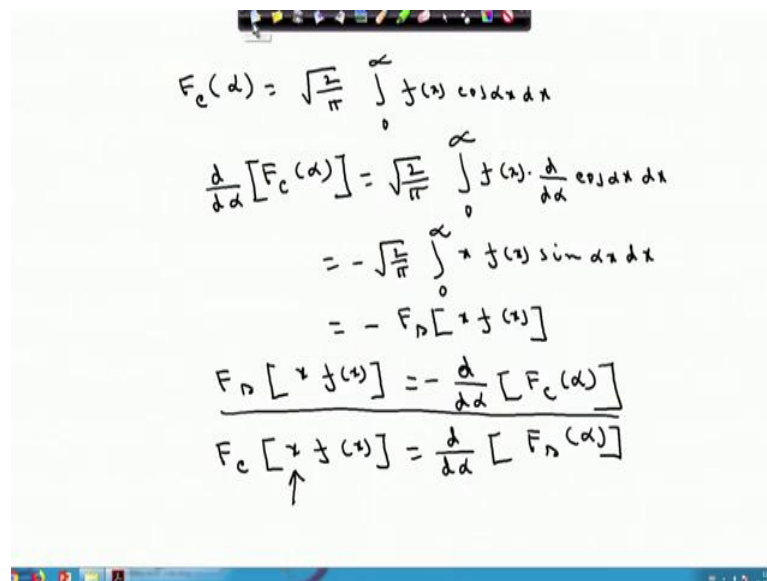 F_c(α) = √(2/π) ∫_0^∞ f(x) cos αx dx
d/dα [F_c(α)] = √(2/π) ∫_0^∞ f(x) · d/dα cos αx dx
= - √(2/π) ∫_0^∞ x f(x) sin αx dx
= - F_s [x f(x)]
F_s [x f(x)] = - d/dα [F_c(α)]
F_c [x f(x)] = d/dα [F_s(α)]